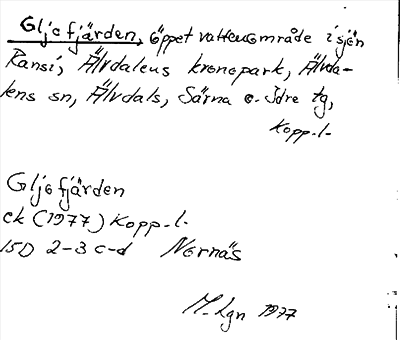 Gljofjärden, öppet vattenområde i sjön
Ransi, Älvdalens kronopark, Älvda-
lens sn, Älvdals, Särna o. Idre tg,
Kopp. l.
Gljofjärden
ek (1977) Kopp. l.
15D 2-3 c-d Nornäs
M. Lgn 1977